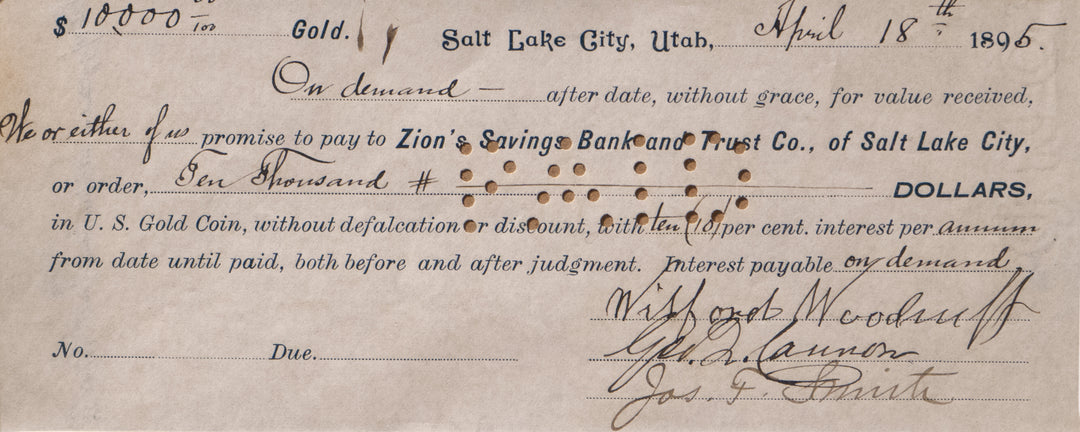 $ 10,000 00/100 Gold. Salt Lake City, Utah, April 18th 1895.
On demand — after date, without grace, for value received,
We or either of us promise to pay to Zion's Savings Bank and Trust Co., of Salt Lake City,
or order, Ten Thousand # DOLLARS,
in U. S. Gold Coin, without defalcation or discount, with ten (10) per cent. interest per annum
from date until paid, both before and after judgment. Interest payable on demand
Wilford Woodruff
No. Due. Geo. Q. Cannon
Jos. F. Smith